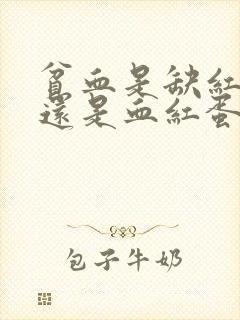 貧血是缺紅
還是血紅蛋
包子牛奶